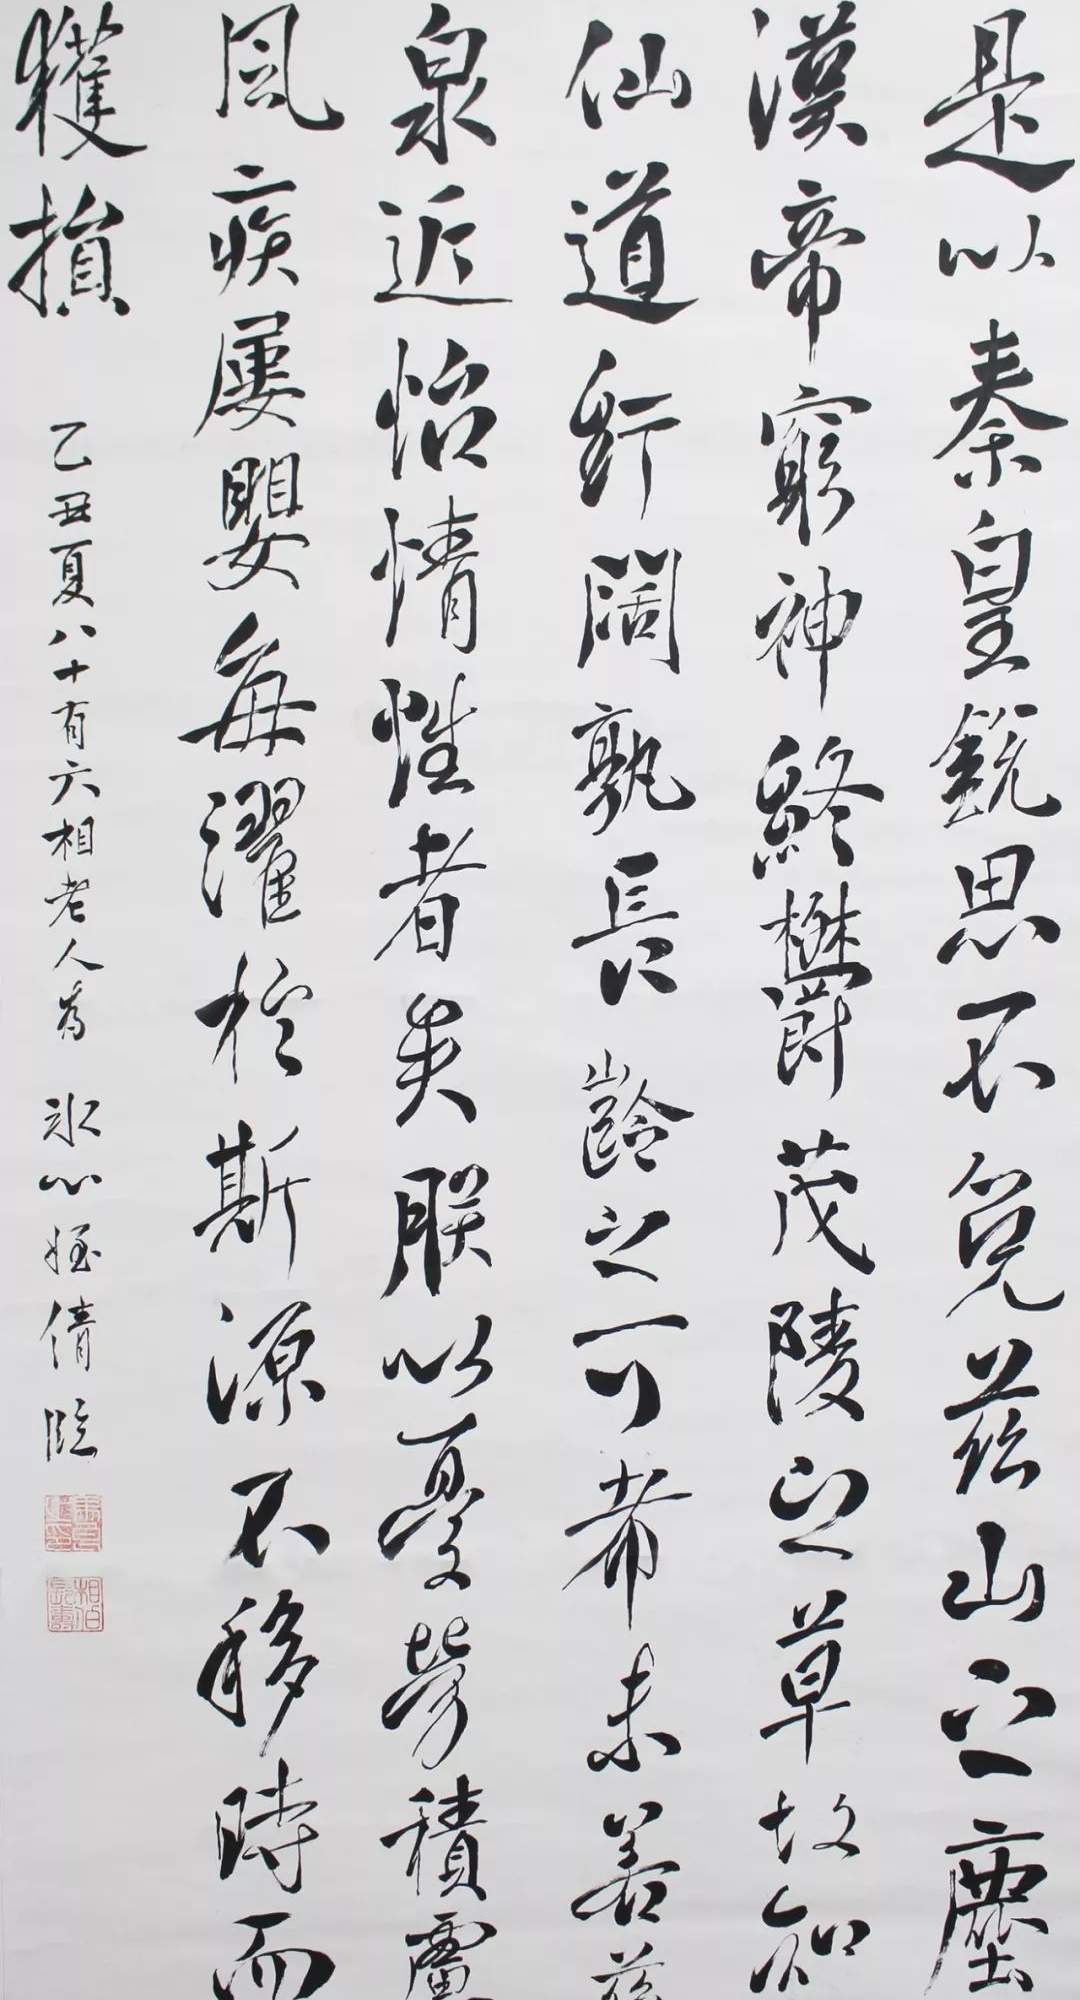 是以秦皇銳思不免茲山之塵
漢帝窮神終鬱茂陵之草故知
仙道紆闊孰長齡之可希未若茲
泉近怡情性者矣朕以憂勞積慮
風疾屢嬰每濯於斯源不移時而
獲損
乙丑夏八十有六相老人為 冰心姪倩臨
相伯長壽